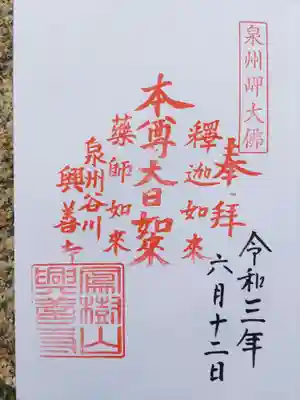 泉州岬大佛
奉拜
釋迦如来
本尊大日如来
藥師如来
泉州谷川
興善寺
令和三年
六月十二日
寶樹山
興善寺